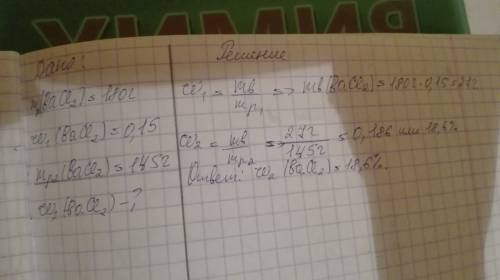 Дано:
m(BaCl₂)=180г
ω₁(BaCl₂)=0,15
mр₂(BaCl₂)=145г
ω₂(BaCl₂)-?
Решение
ω₁ = mв/mр₁ => mв(BaCl₂)=180г·0,15=27г
ω₂ = mв/mр₂ => 27г/145г = 0,186 или 18,6%
Ответ: ω₂(BaCl₂)=18,6%.